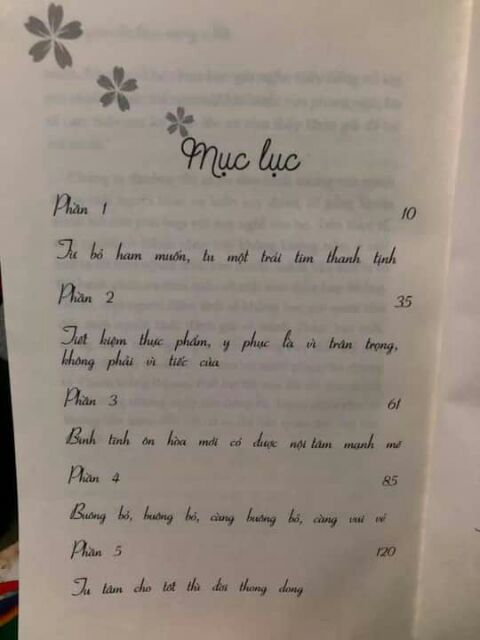 Mục lục
Phần 1 10
Từ bỏ ham muốn, tu một trái tim thanh tịnh
Phần 2 35
Tiết kiệm thực phẩm, y phục là vì trân trọng,
không phải vì tiếc của
Phần 3 61
Bình tĩnh ôn hòa mới có được nội tâm mạnh mẽ
Phần 4 85
Buông bỏ, buông bỏ, càng buông bỏ, càng vui vẻ
Phần 5 120
Tu tâm cho tốt thì đời thong dong